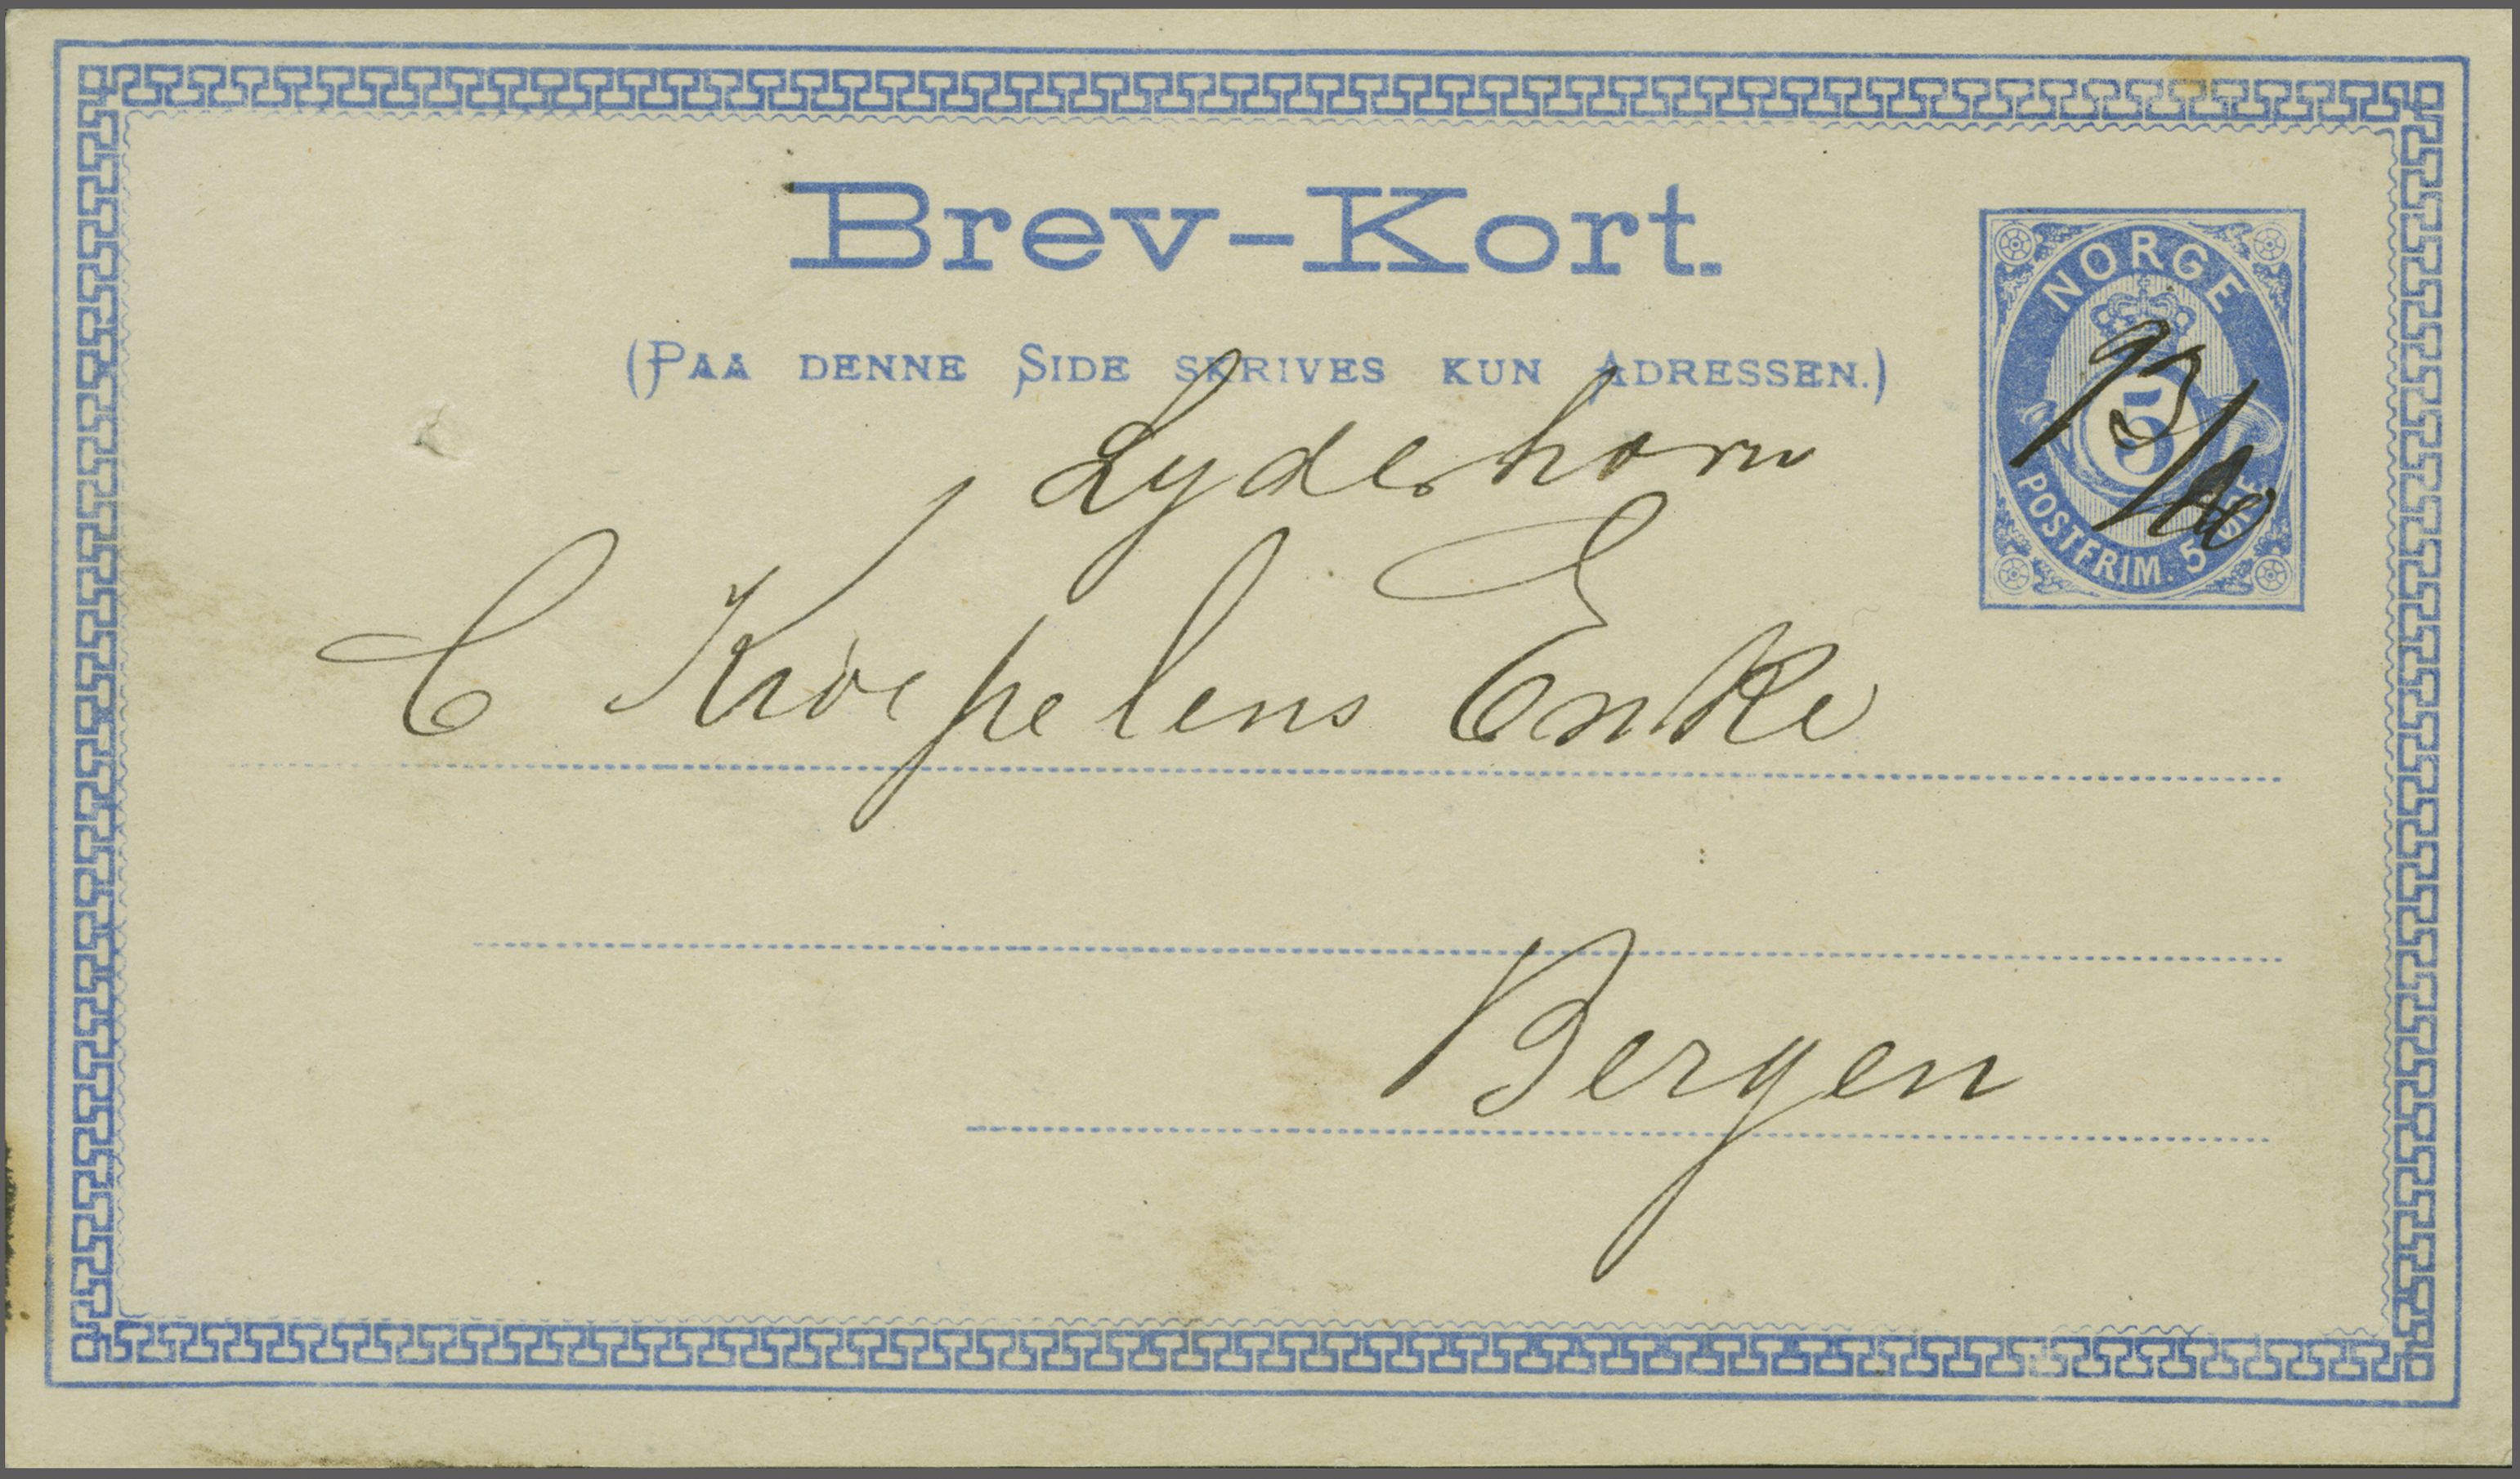 Brev-Kort.
(PAA DENNE SIDE SKRIVES KUN ADRESSEN.)
NORGE
5
POSTFRIM. 5 ØRE
Lyderhorn
C Kroepelens Enke
Bergen